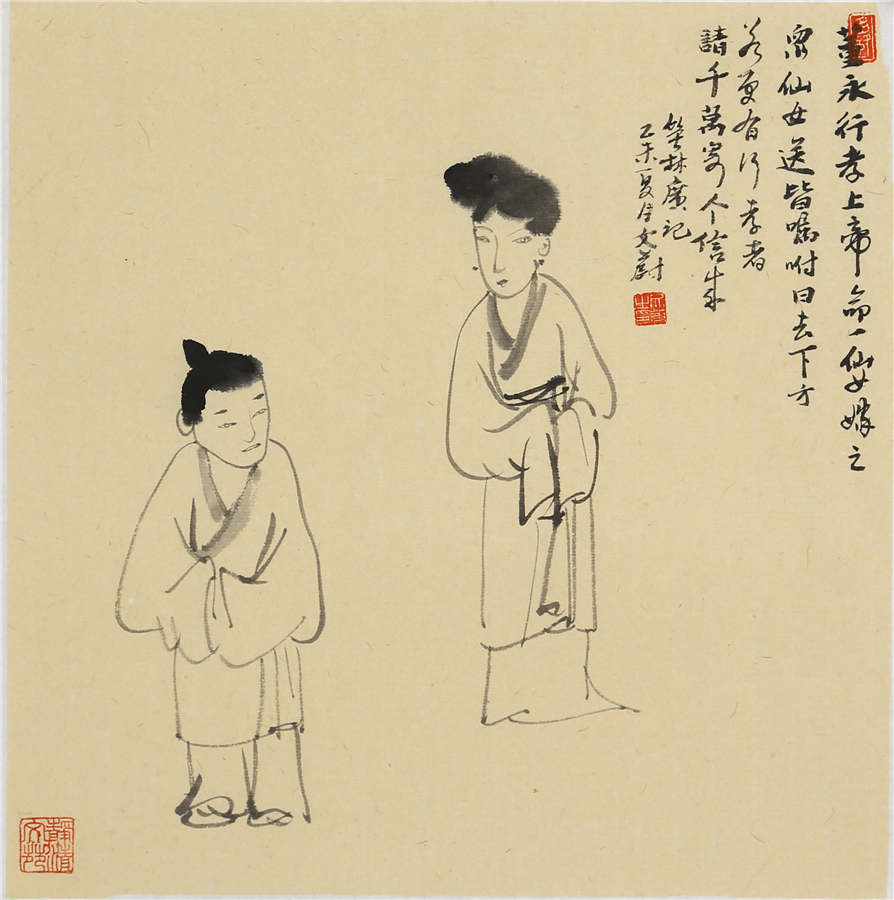 董永行孝上帝命一仙女嫁之
眾仙女送皆嘱咐曰去下方
若更有行孝者
請千萬寄个信來
笑林廣記
乙未夏月文蔚